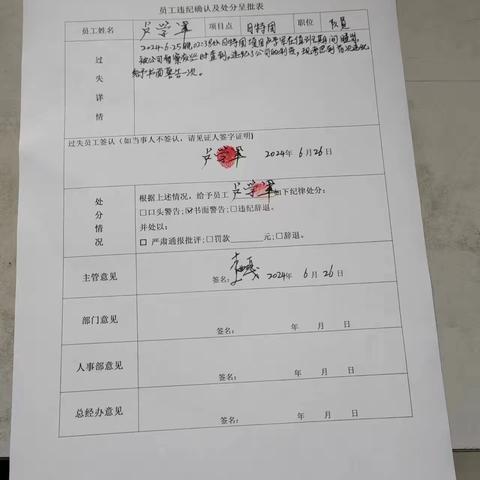 员工违纪确认及处分呈批表
员工姓名 卢学军 项目点 日特固 职位 队员
过失详情
2024-6-25日, 02:38分日特固项目卢学军在值班期间睡觉
被公司督察发现时查到, 违犯了公司的制度, 现
给予书面警告一次。
过失员工签认（如当事人不签认，请见证人签字证明）
卢学军 2024年 6月26日
处分情况
根据上述情况，给予员工 卢学军 如下纪律处分：
□口头警告；☑书面警告；□违纪辞退。
并处以：
□ 严肃通报批评；□罚款 元；□辞退。
主管意见
签名： 2024年 6月26日
部门意见
签名： 年 月 日
人事部意见
签名： 年 月 日
总经办意见
签名： 年 月 日